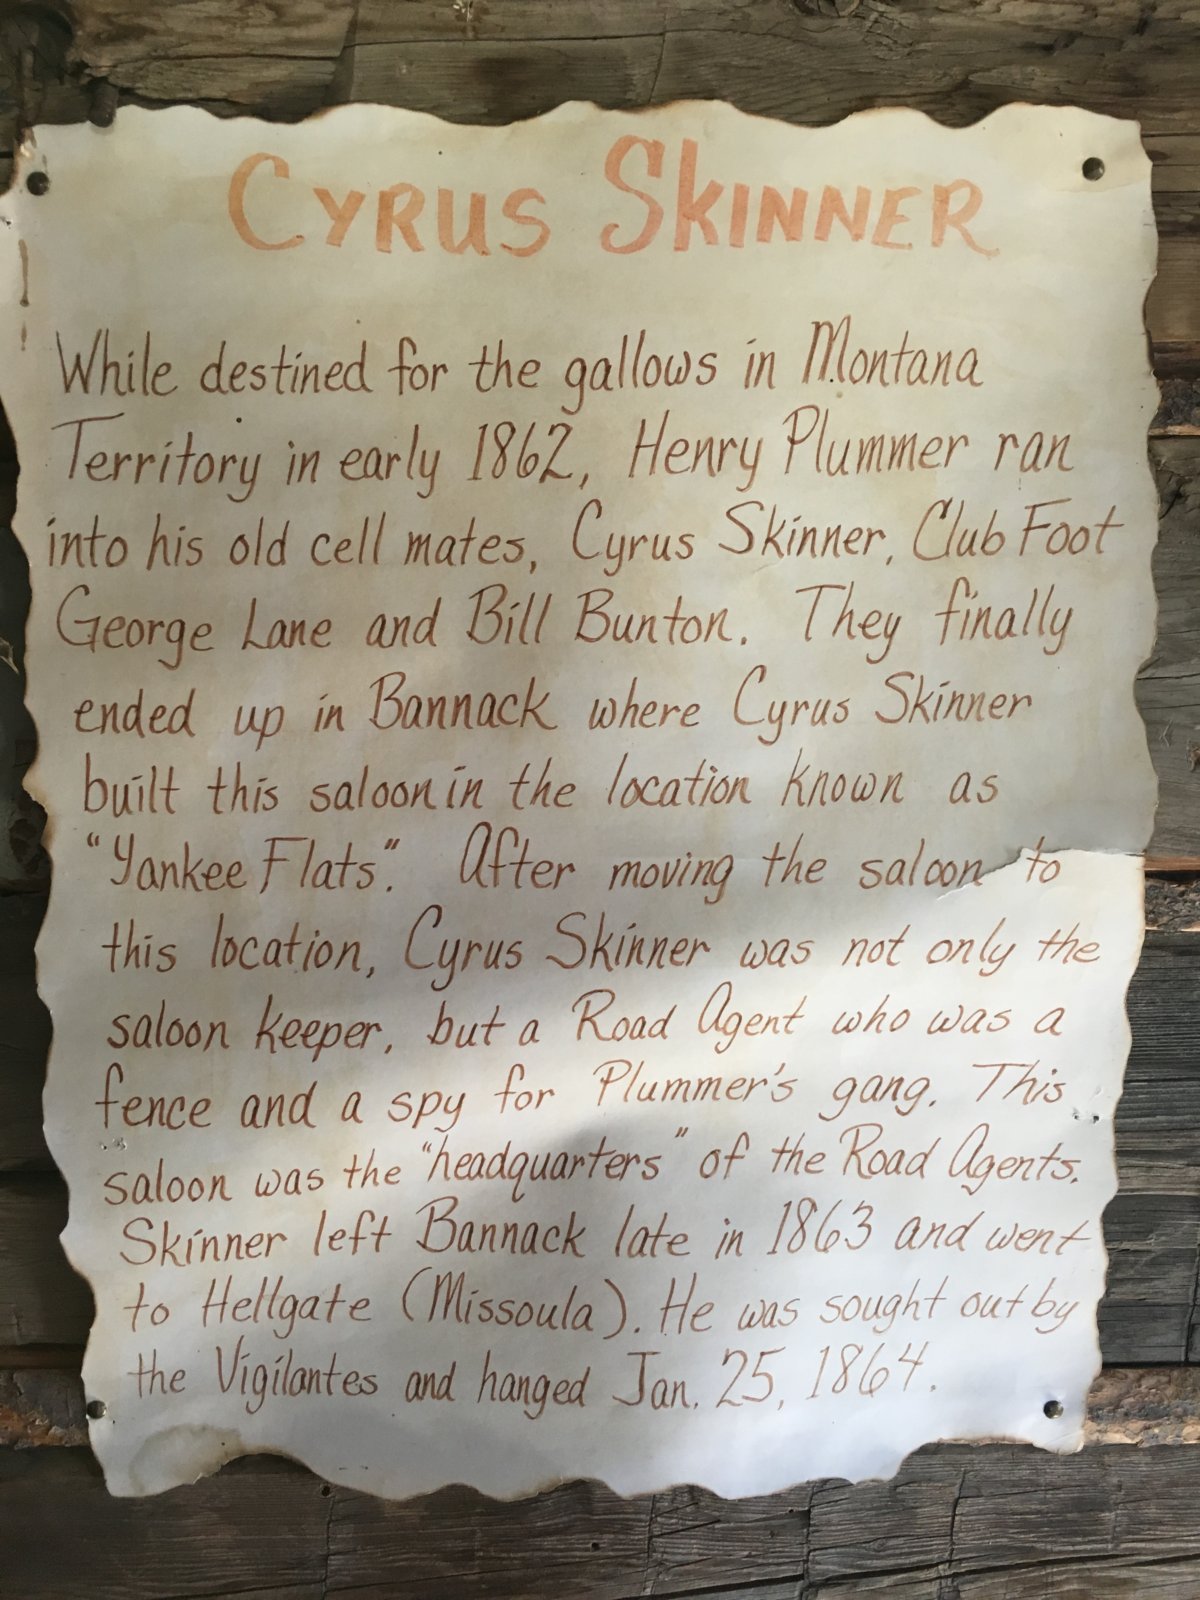 CYRUS SKINNER
While destined for the gallows in Montana
Territory in early 1862, Henry Plummer ran
into his old cell mates, Cyrus Skinner, Club Foot
George Lane and Bill Bunton. They finally
ended up in Bannack where Cyrus Skinner
built this saloon in the location known as
"Yankee Flats". After moving the saloon to
this location, Cyrus Skinner was not only the
saloon keeper, but a Road Agent who was a
fence and a spy for Plummer's gang. This
saloon was the "headquarters" of the Road Agents.
Skinner left Bannack late in 1863 and went
to Hellgate (Missoula). He was sought out by
the Vigilantes and hanged Jan. 25, 1864.